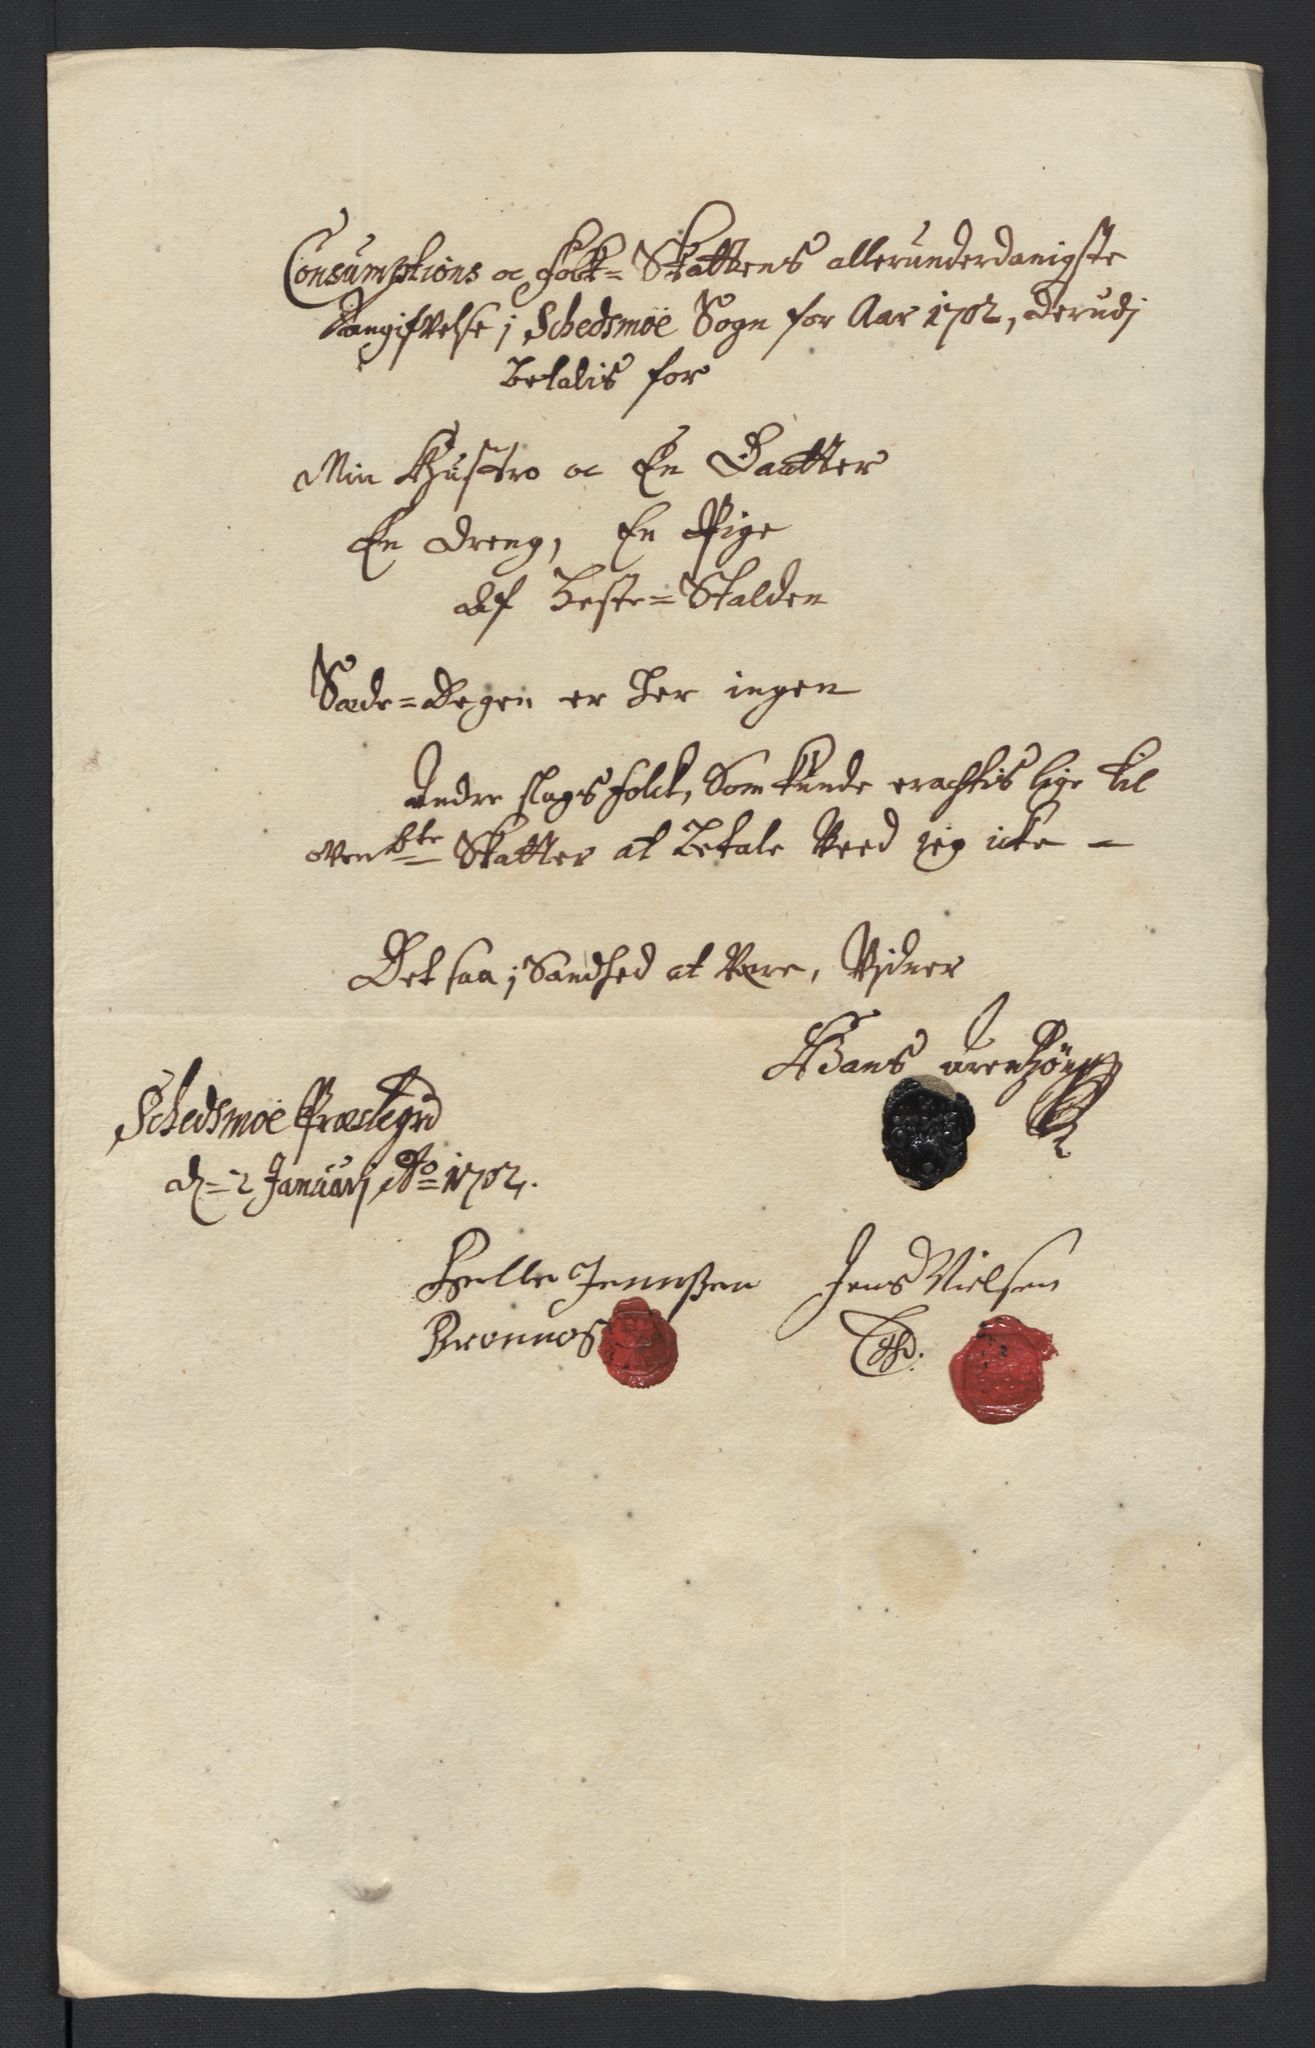 Consumptions oc Folk= Skattens allerunderdanigste
Aangifvelse j Schedsmoë Sogn for Aar 1702, derudj
betalis for
Min Hustro oc En Daatter
En Dreng, En Pige
Af Heste=Stalden
Sæde=Degen er her ingen
Andre slags folck, Som kunde erachtis lige til
ovenbte Skatter at betale Veed jeg icke -
Det saa j Sandhed at Være, Vidner
Hans
Schedsmoë Præstegrd
d= 2 Januarj Ao= 1702.
Helle Jennßen Jens Nielsen